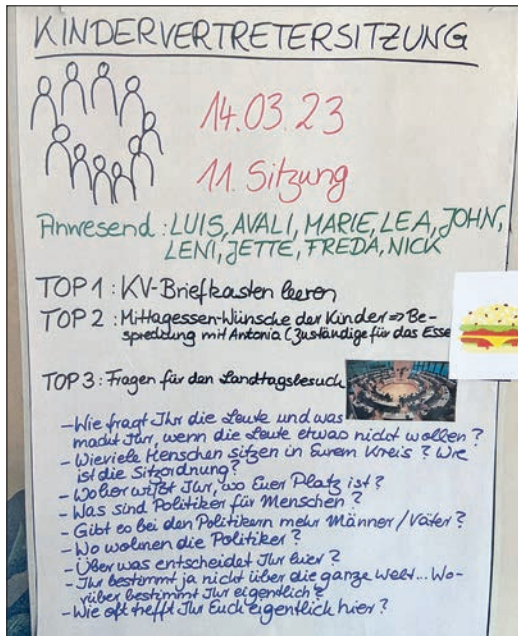 KINDERVERTRETERSITZUNG
14.03.23
11. Sitzung
Anwesend: LUIS, AVALI, MARIE, LEA, JOHN,
LENI, JETTE, FREDA, NICK
TOP 1: KV-Briefkasten leeren
TOP 2: Mittagessen-Wünsche der Kinder => Be-
sprechung mit Antonia (Zuständige für das Esse
TOP 3: Fragen für den Landtagsbesuch
- Wie fragt Ihr die Leute und was
macht Ihr, wenn die Leute etwas nicht wollen?
- Wieviele Menschen sitzen in Eurem Kreis? Wie
ist die Sitzordnung?
- Woher wißt Ihr, wo Euer Platz ist?
- Was sind Politiker für Menschen?
- Gibt es bei den Politikern mehr Männer/Väter?
- Wo wohnen die Politiker?
- Über was entscheidet Ihr hier?
- Ihr bestimmt ja nicht über die ganze Welt... Wo-
rüber bestimmt Ihr eigentlich?
- Wie oft trefft Ihr Euch eigentlich hier?